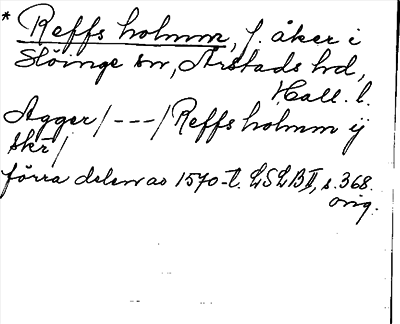 * Reffs holmm, f. åker i
Slöinge sn, Årstads hd,
Hall. l.
Agger/---/Reffs holmm ij
skr/
förra delen av 1570-t. LSLB II, s. 368.
orig.